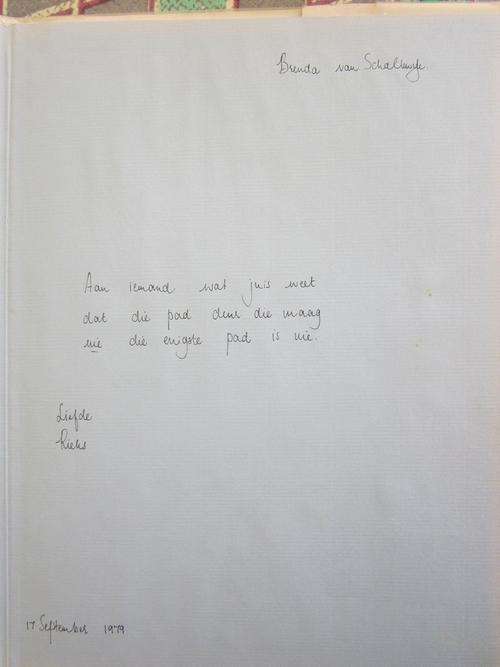 Brenda van Schalkwyk.
Aan iemand wat juis weet
dat die pad deur die maag
nie die enigste pad is nie.
Liefde
Rieks
17 September 1979